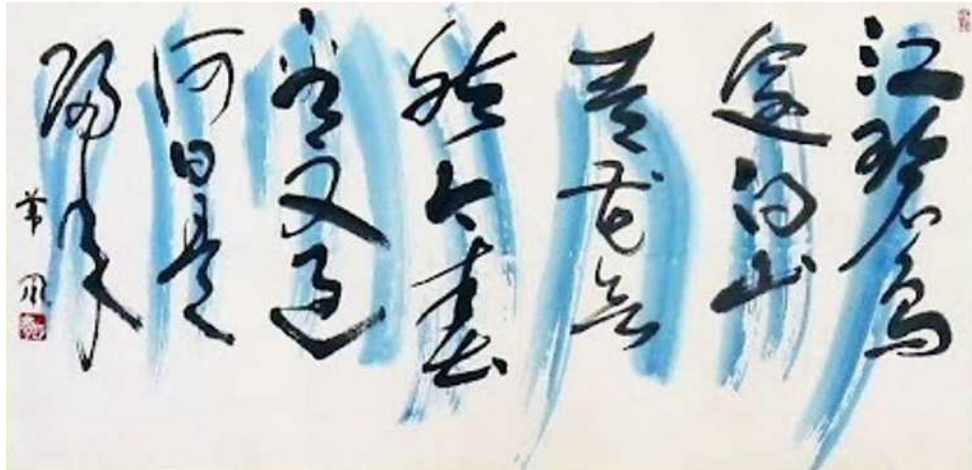 江碧鸟
逾白山
青花欲
燃今春
看又过
何日是
归年